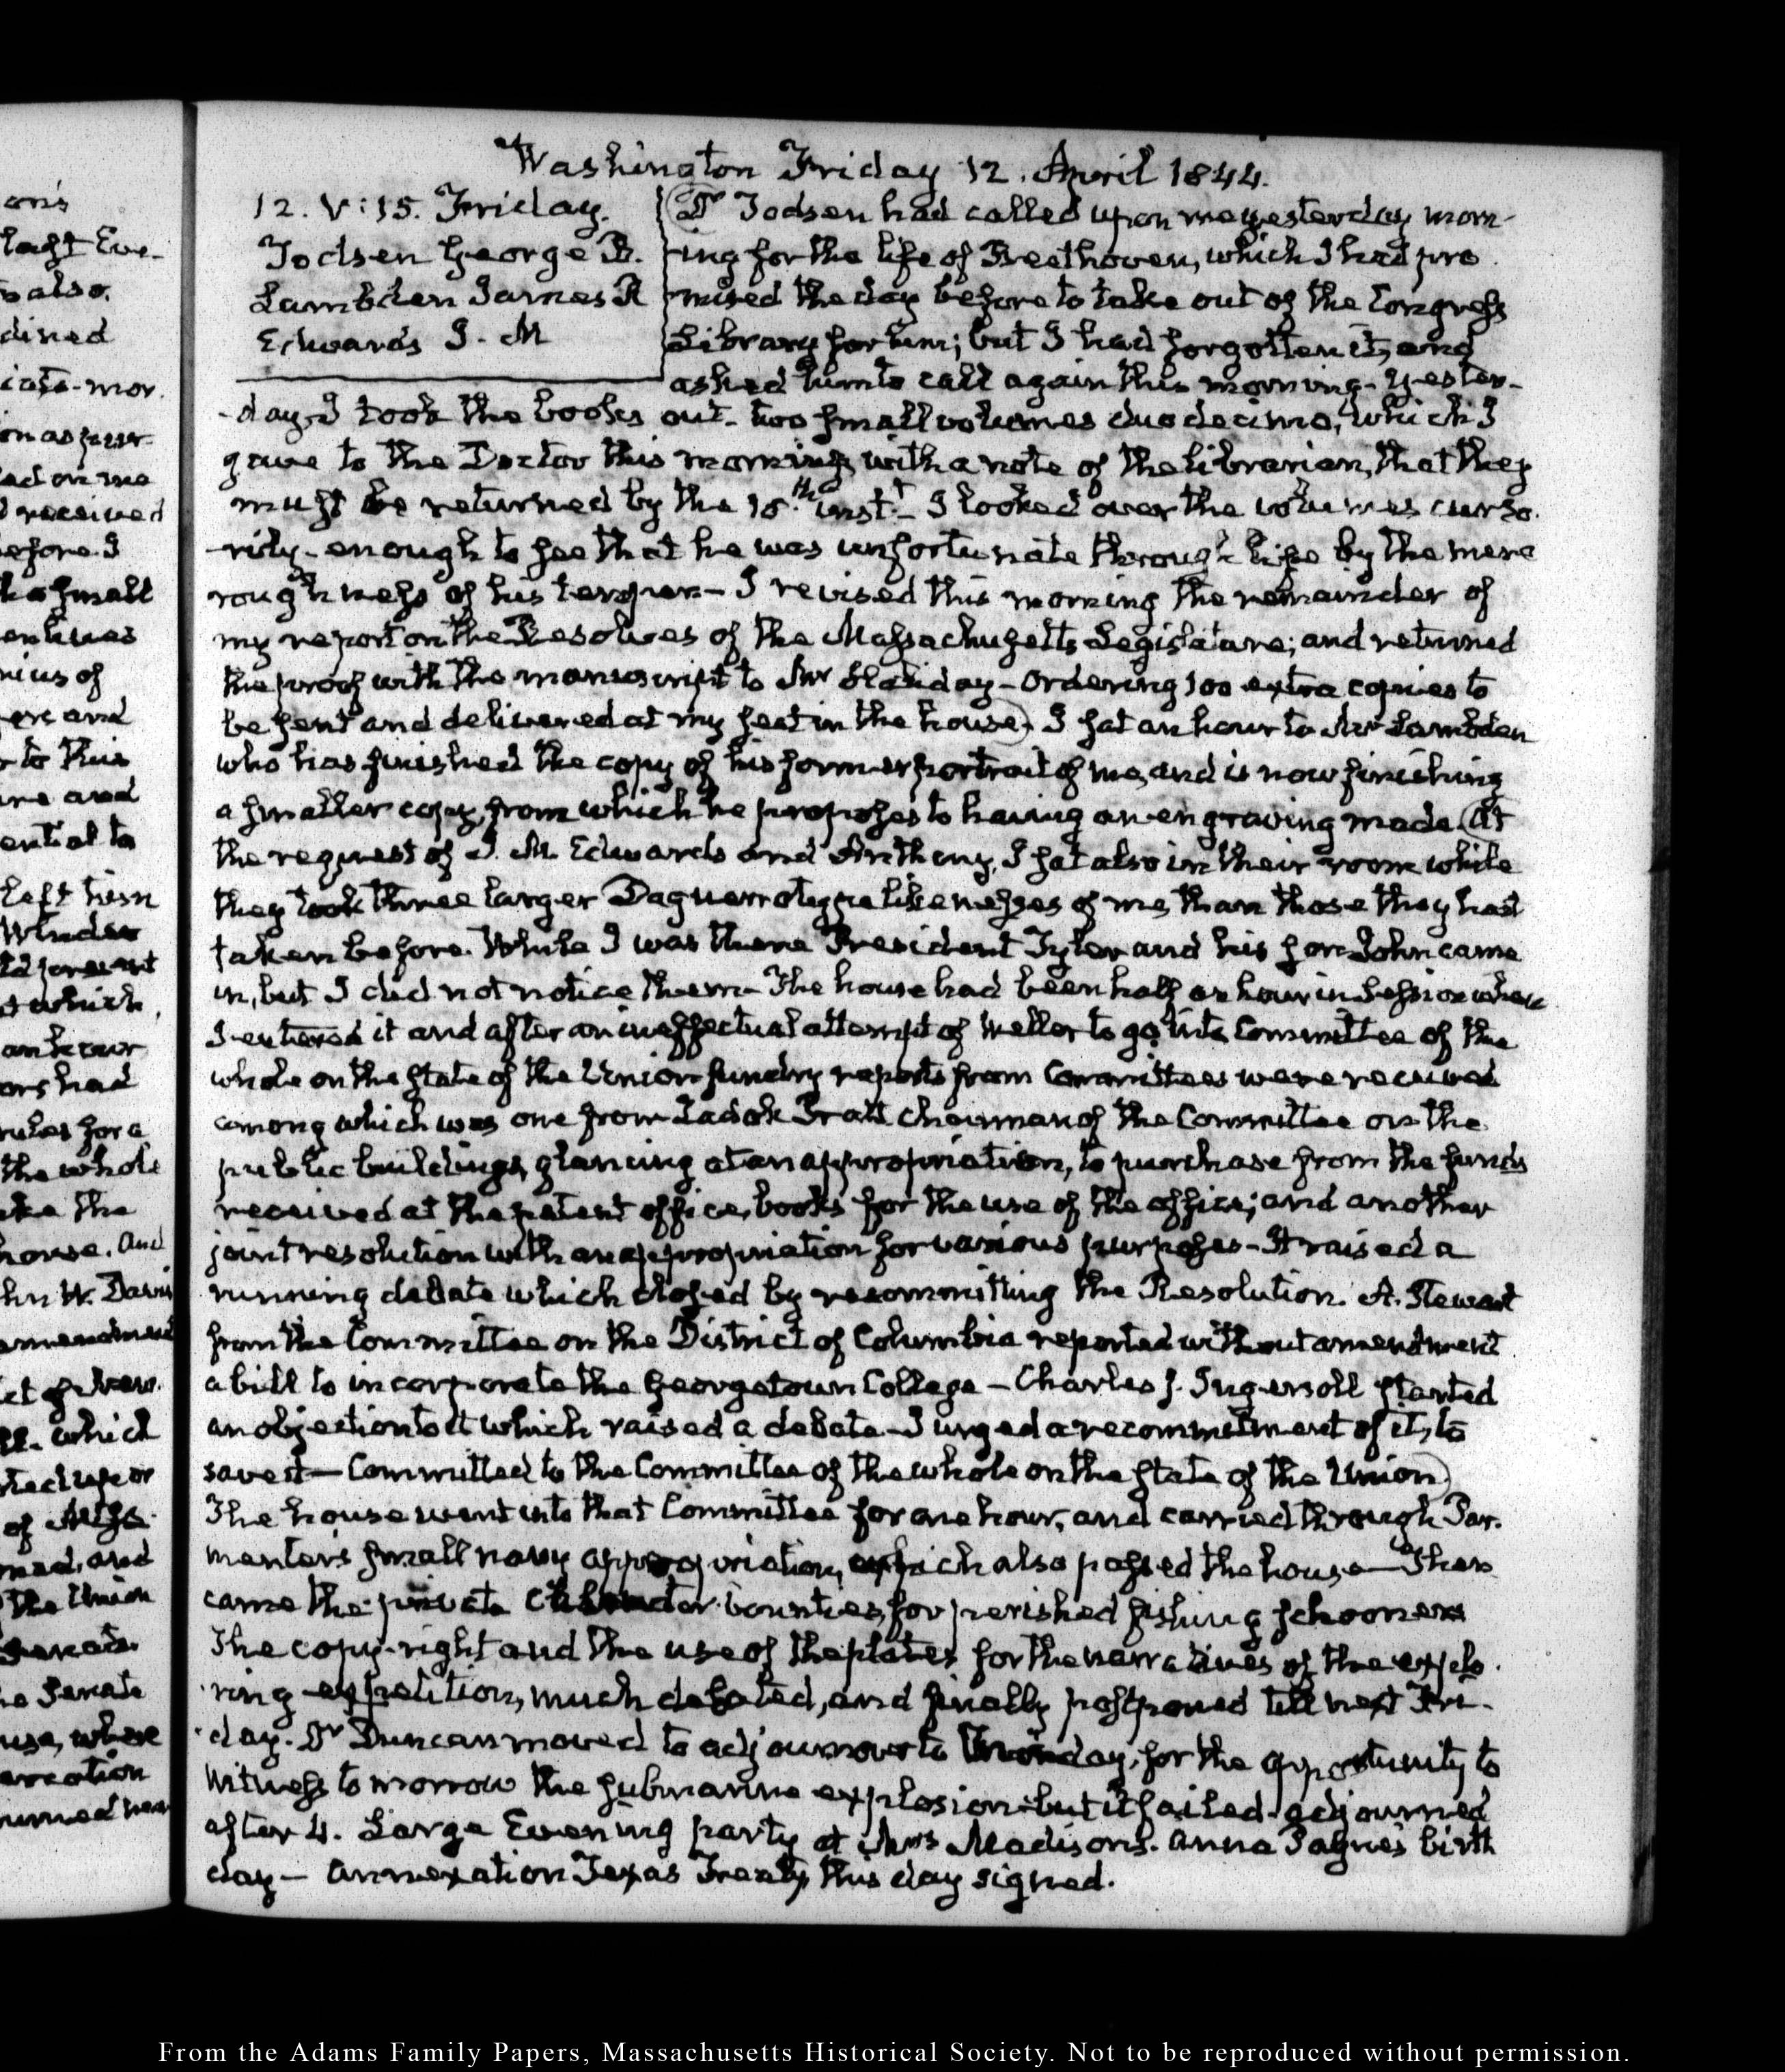 on's
last Eve-
also.
dined
ad on me
received
before I
small
nius of
and
to this
and
ential to
left him
which,
had
rules for a
the whole
the
house. And
John W. Davis
amendment
which
of
and
the Union
Senate.
Senate
where
Washington Friday 12. April 1844.
12. V:15. Friday.
Todsen George B.
Lambden James R
Edwards J. M
Dr Todsen had called upon me yesterday morn-
-ing for the life of Beethoven, which I had pro
mised the day before to take out of the Congress
Library for him; but I had forgotten it, and
asked him to call again this morning- Yester-
-day, I took the books out- two small volumes duodecimo, which I
gave to the Doctor this morning, with a note of the librarian, that they
must be returned by the 15.th inst.t- I looked over the volumes curso.
-rily- enough to see that he was unfortunate through life by the mere
roughness of his temper- I revised this morning the remainder of
my report on the Resolves of the Massachusetts Legislature; and returned
the proof with the manuscript to Mr - ordering 100 extra copies to
be sent and delivered at my seat in the house) I sat an hour to Mr Lambden
who has finished the copy of his former portrait of me, and is now finishing
a smaller copy, from which he proposes to having an engraving made. (At
the request of J. M. Edwards and Anthony, I sat also in their room while
they took three larger Daguerrotype likenesses of me than those they had
taken before. While I was there President Tyler and his son John came
in, but I did not notice them- The house had been half an hour in Session when
I entered it and after an ineffectual attempt of Weller to go into Committee of the
whole on the state of the Union sundry reports from Committees were received
among which was one from Zadok Pratt chairman of the Committee on the
public buildings, glancing at an appropriation, to purchase from the funds
received at the patent office, books for the use of the office; and another
joint resolution with an appropriation for various purposes- It raised a
running debate which closed by recommitting the Resolution. A. Stewart
from the Committee on the District of Columbia reported without amendment
a bill to incorporate the Georgetown College - Charles J. Ingersoll started
an objection to it which raised a debate- I urged a recommitment of it, to
save it- Committed to the Committee of the whole on the state of the Union)
The house went into that Committee for one hour, and carried through Par.
menter's small navy appropriation, which also passed the house- Then
came the private Calendar bounties, for perished fishing schooners
The copy-right and the use of the plates for the narratives of the explo.
ring expedition, much debated, and finally postponed till next Fri-
day. Dr Duncan moved to adjourn over to Monday, for the opportunity to
witness to morrow the submarine explosion- but it failed- adjourned
after 4. Large Evening party at Mrs Madison's. Anna Payne's birth
day- Annexation Texas Treaty this day signed.
From the Adams Family Papers, Massachusetts Historical Society. Not to be reproduced without permission.